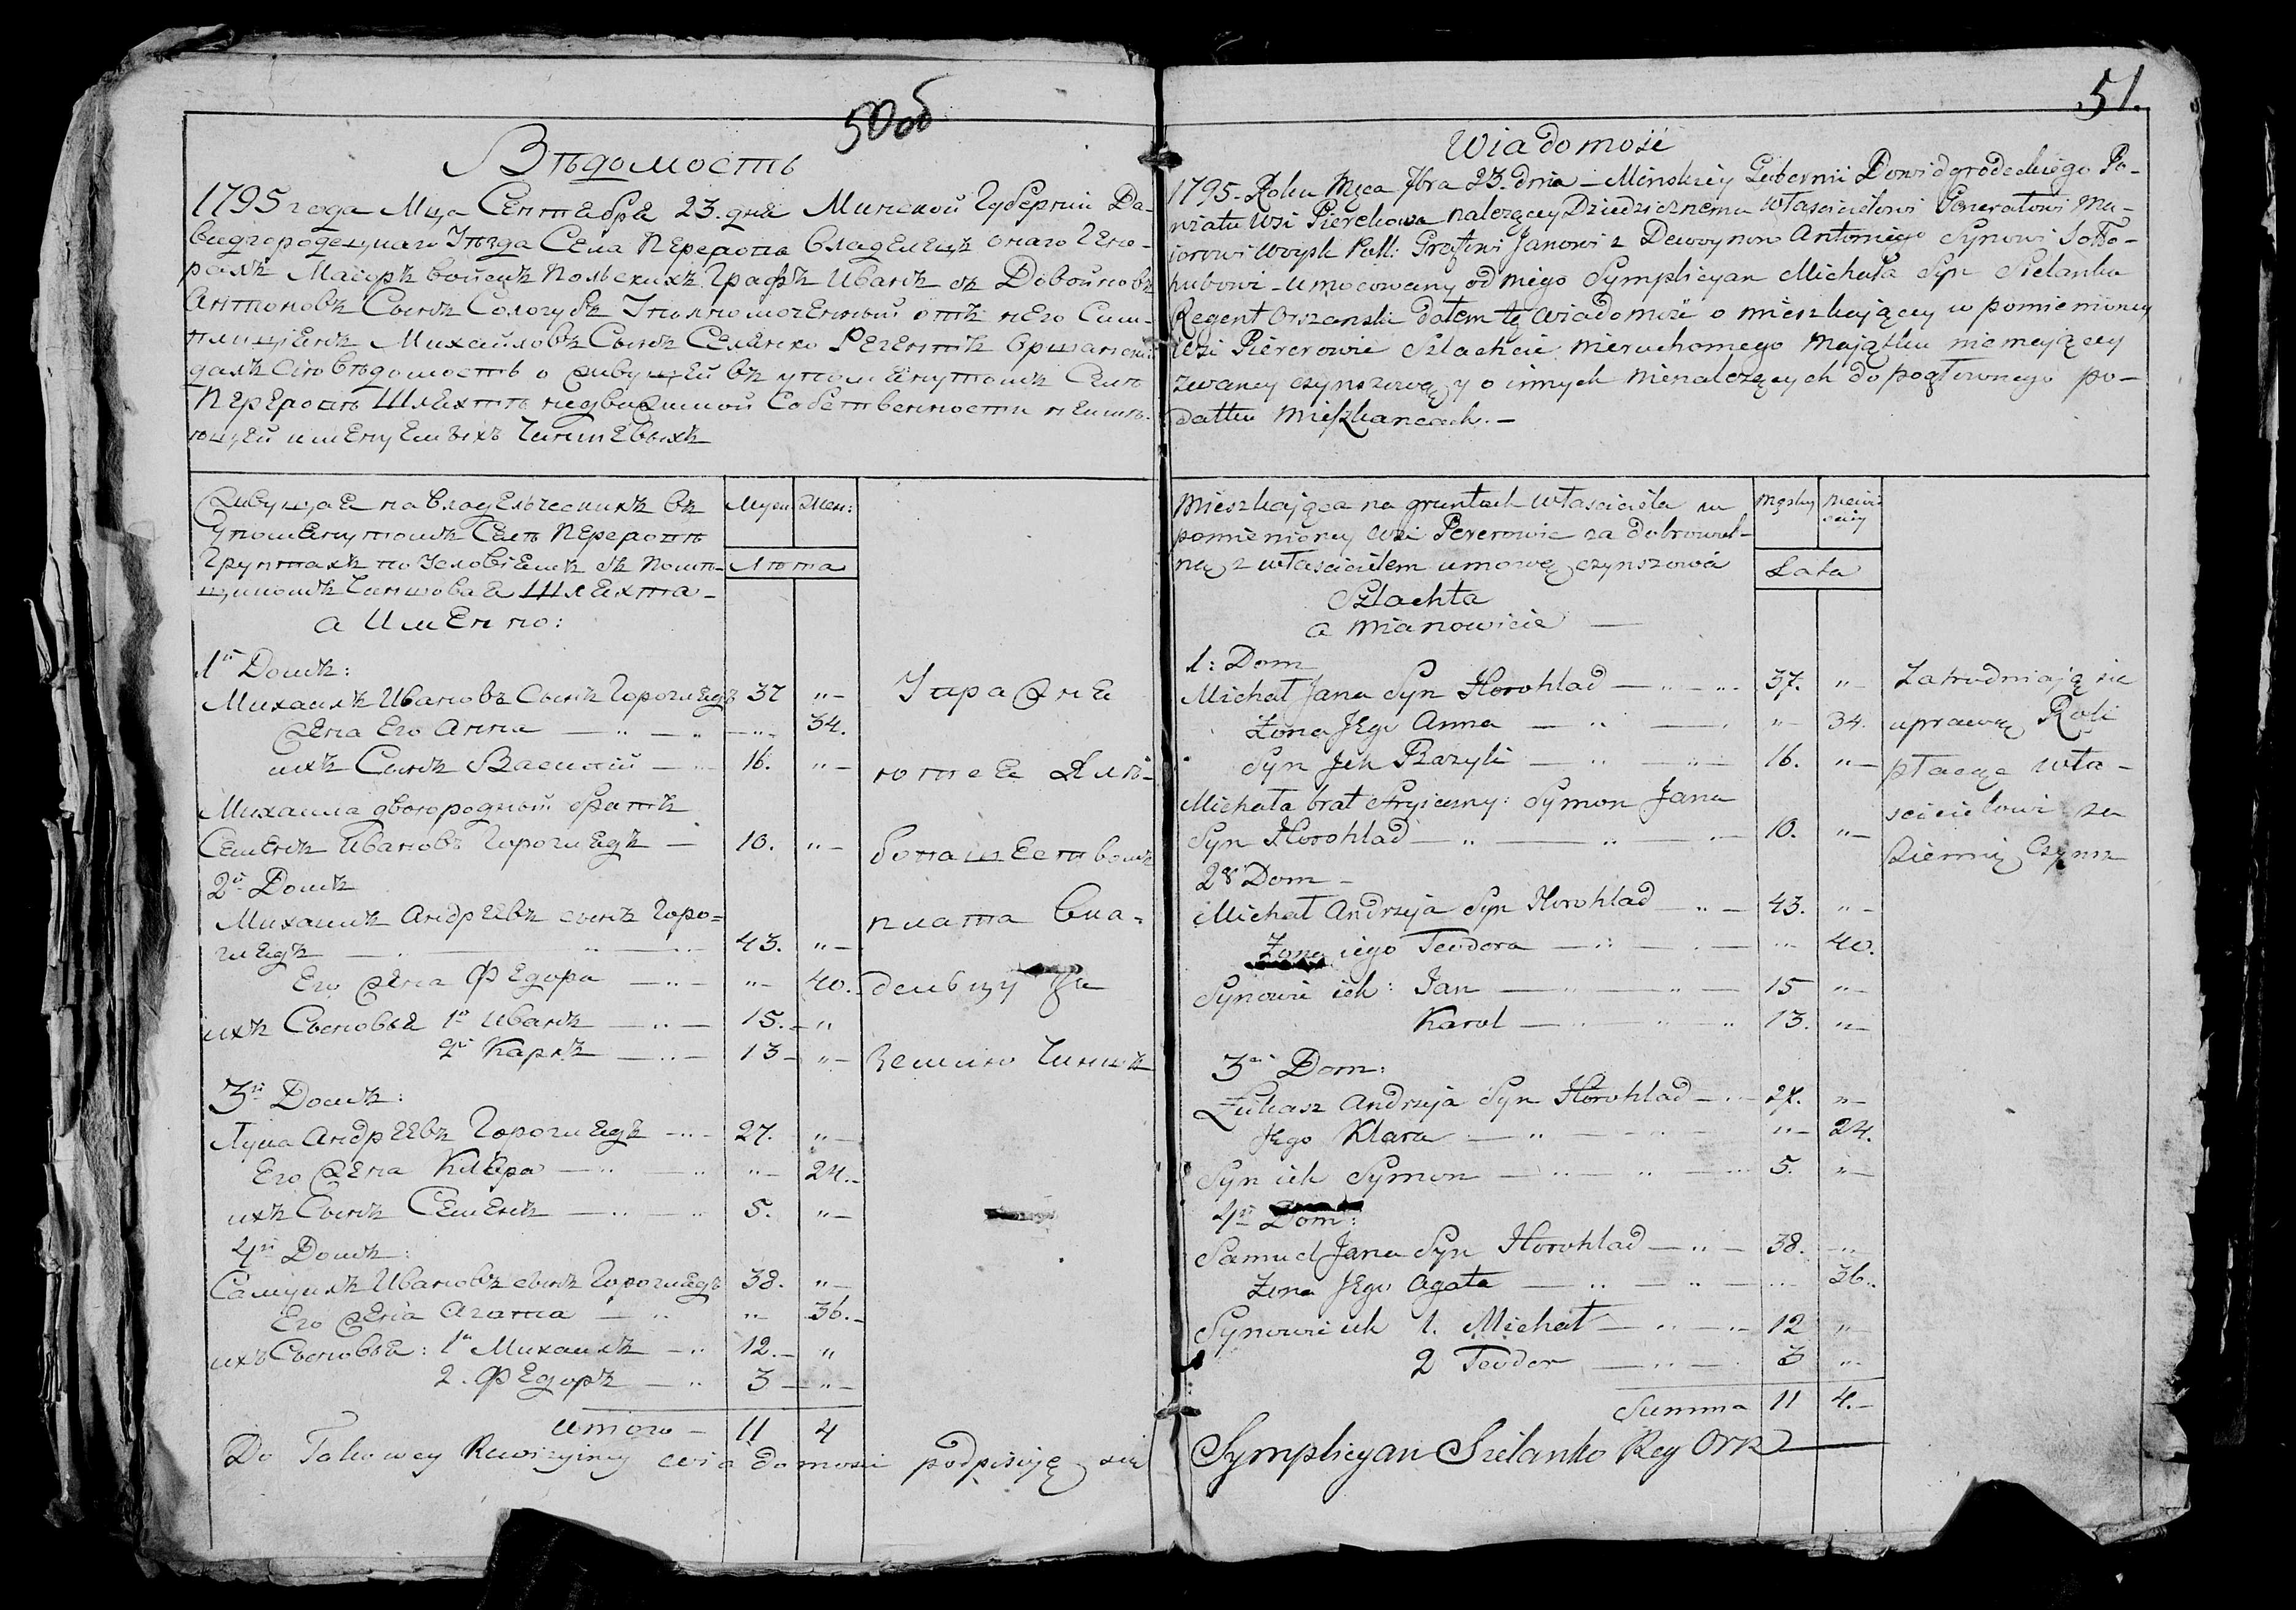 50об
Вѣдомость
1795 года Мца Сентября 23. дня Минской Губернии Да-
видгородецкаго Уѣзда Села Переропа владелецъ онаго Гене-
ралъ Маіоръ войскъ польскихъ Графъ Иванъ съ Довойновъ
Антоновъ Сынъ Сологубъ Уполномоченный отъ него Сим-
плиціенъ Михайловъ Сынъ Селянко Регентъ Оршански
далъ сію вѣдомость о живущей въ упомянутомъ Селѣ
Переропѣ Шляхтѣ недвижимой Собственности неимѣ-
ющей именуемыхъ Чиншевыхъ
Живущая на владельческихъ въ
Упомянутомъ Селѣ Переропѣ
Грунтахъ по Условіемъ съ Помѣ-
щикомъ Чиншовая Шляхта -
а Именно:
Муж: Жен:
Лѣта
1й Домъ:
Михаилъ Ивановъ Сынъ Горогледъ 37 "
Жена Его Анна 34.
ихъ Сынъ Василий 16. "
Михаила двоюродный братъ
Семенъ Ивановъ Горогледъ 10. "
2й Домъ
Михаилъ Андреевъ сынъ Горо=
гледъ 43. "
Его Жена Федора " 40.
ихъ Сыновья 1й Иванъ 15. "
2й Карлъ 13 "
3й Домъ:
Лука Андреевъ Горогледъ 27. "
Его Жена Клара " 24.
ихъ Сынъ Семенъ 5. "
4й Домъ:
Самуилъ Ивановъ сынъ Горогледъ 38. "
Его Жена Агата " 36.
ихъ Сыновья: 1й Михаилъ 12. "
2. Федоръ 3 "
Итого 11 4
Упражня
ютса Хлѣ-
бопашествомъ
плата вла-
дельцу За
Землю Чиншъ
Do Takowey Rewizyiney wiadomosci podpisuję się
51.
Wiadomość
1795. Roku Mca 7bra 23. dnia - Minskiey Gubernii Dawidgrodeckiego Po-
wiatu Wsi Pierekowa należącey Dziedzicznemu właścicielowi Generałowi Ma-
iorowi Woysk Poll: Grafowi Janowi z Dewoynow Antoniego Synowi Sołło-
hubowi - umocowany od niego Symplicyan Michała Syn Sielanko
Regent Orszanski dałem tę wiadomość o mieszkaiącey w pomienioney
Wsi Piererowie Szlachcie nieruchomego maiątku niemaiącey
zwaney czynszową y o innych nienależących do pogłownego po-
datku mieszkancach. -
Mieszkaiąca na gruntach właściciela w
pomienioney Wsi Pererowie za dobrowol-
ną z właścicielem umową czynszowa
Szlachta
a mianowicie
Męskiey Niewi
esciey
Lata
1: Dom
Michał Jana Syn Horohlad 37. "
Zona Jego Anna " 34.
Syn Ich Bazyli 16. "
Michała brat stryieczny: Symon Jana
Syn Horohlad 10. "
2gi Dom -
Michał Andrzeja Syn Horohlad 43. "
Zona iego Teodora " 40.
Synowie ich: Jan 15 "
Karol 13. "
3ci Dom:
Łukasz Andrzeja Syn Horohlad 27. "
Jego Klara " 24.
Syn ich Symon 5. "
4ty Dom:
Samuel Jana Syn Horohlad 38. "
Zona Jego Agata " 36.
Synowie ich 1. Michał 12 "
2 Teodor 3 "
Summa 11 4.
Zatrudniaią się
uprawą Roli
płacąc wła-
scicielowi za
Ziemię Czynsz
Symplicyan Sielanko Reg Orsz